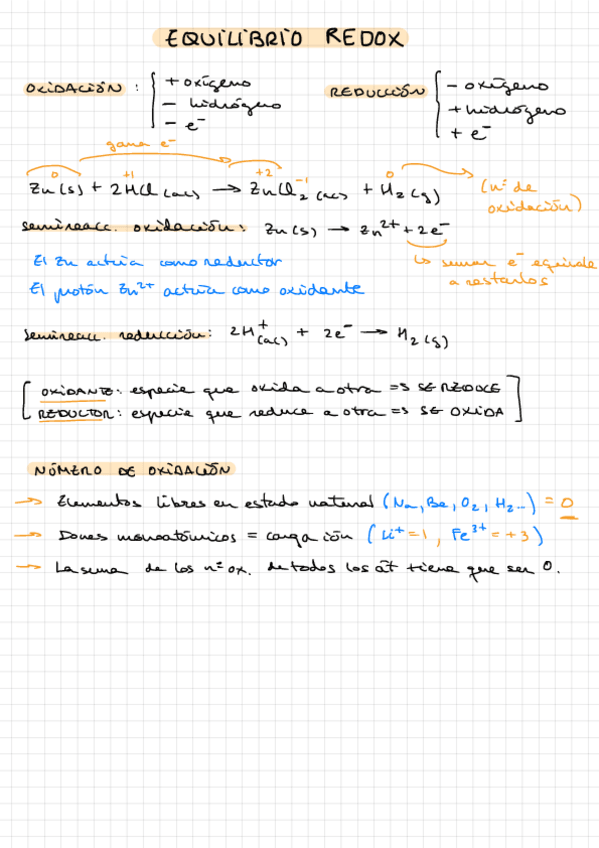 EQUILIBRIO REDOX
OXIDACIÓN : + oxígeno
- hidrógeno
- e⁻
REDUCCIÓN - oxígeno
+ hidrógeno
+ e⁻
gana e⁻
0 +1 +2 -1 0
Zn(s) + 2HCl (ac) → ZnCl₂ (ac) + H₂(g) (nº de oxidación)
semireacc. oxidación: Zn(s) → Zn²⁺ + 2e⁻
El Zn actúa como reductor
El protón Zn²⁺ actúa como oxidante
↳ sumar e⁻ equivale
a restarlos
semireacc. reducción: 2H⁺(ac) + 2e⁻ → H₂(g)
OXIDANTE: especie que oxida a otra => SE REDUCE
REDUCTOR: especie que reduce a otra => SE OXIDA
NÚMERO DE OXIDACIÓN
→ Elementos libres en estado natural (Na, Be, O₂, H₂...) = 0
→ Iones monoatómicos = carga ión (Li⁺ = 1, Fe³⁺ = +3)
→ La suma de los nº ox. de todos los át tiene que ser 0.